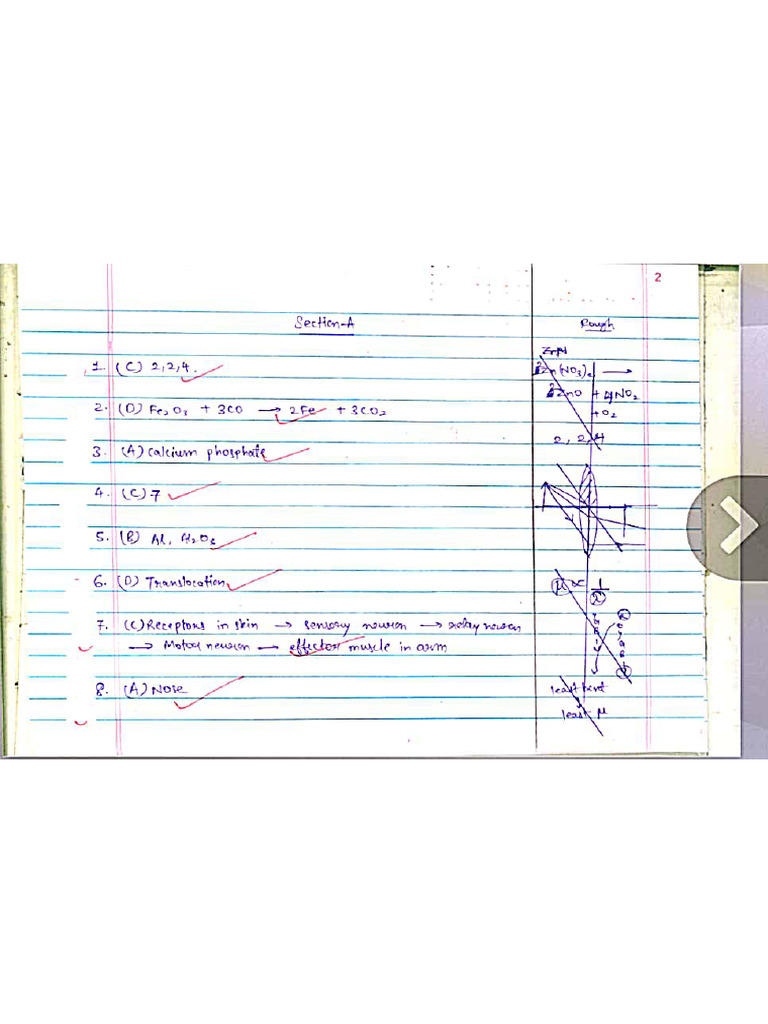 2
Section-A
Rough
1. (C) 2,2,4.
2. (D) Fe₂O₃ + 3CO → 2Fe + 3CO₂
3. (A) calcium phosphate
4. (C) 7
5. (B) Al, Al₂O₃
6. (D) Translocation
7. (C) Receptors in skin → sensory neuron → relay neuron
→ Motor neuron → effector muscle in arm
8. (A) Nose
2Zn(NO₃)₂ →
2ZnO + 4NO₂
+ O₂
2, 2, 4
μ ∝ 1/λ
least bent
least μ